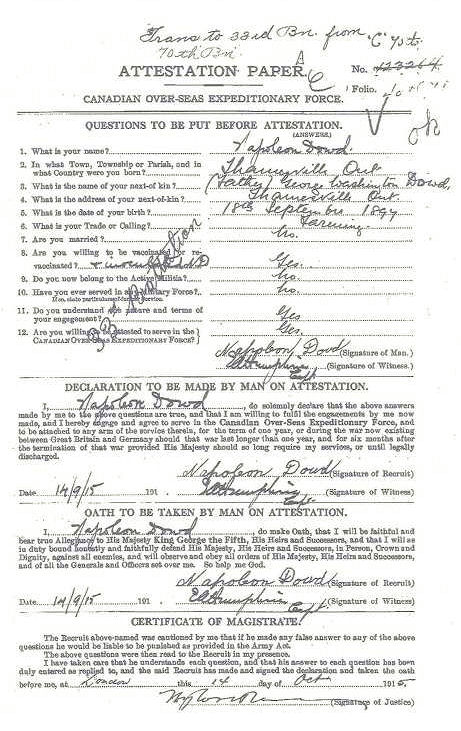 Trans to 33rd Bn. from "C"
70th Bn
ATTESTATION PAPER.
No.
Folio.
CANADIAN OVER-SEAS EXPEDITIONARY FORCE.
ok
QUESTIONS TO BE PUT BEFORE ATTESTATION.
(ANSWERS)
1. What is your name? Napoleon Dowd.
2. In what Town, Township or Parish, and in what Country were you born? Thamesville, Ont
3. What is the name of your next-of kin? (Father) George Washington Dowd,
4. What is the address of your next-of-kin? Thamesville Ont.
5. What is the date of your birth? 18th September 1897
6. What is your Trade or Calling? Farming.
7. Are you married? No.
8. Are you willing to be vaccinated or re-
vaccinated? Yes.
9. Do you now belong to the Active Militia? No.
10. Have you ever served in any Military Force? No.
If so, state particulars of former Service.
11. Do you understand the nature and terms of
your engagement? Yes
12. Are you willing to be attested to serve in the
CANADIAN OVER-SEAS EXPEDITIONARY FORCE? Yes.
Napoleon Dowd (Signature of Man.)
(Signature of Witness.)
Capt
DECLARATION TO BE MADE BY MAN ON ATTESTATION.
I, Napoleon Dowd, do solemnly declare that the above answers
made by me to the above questions are true, and that I am willing to fulfil the engagements by me now
made, and I hereby engage and agree to serve in the Canadian Over-Seas Expeditionary Force, and
to be attached to any arm of the service therein, for the term of one year, or during the war now existing
between Great Britain and Germany should that war last longer than one year, and for six months after
the termination of that war provided His Majesty should so long require my services, or until legally
discharged.
Napoleon Dowd (Signature of Recruit)
Date 14/9/15 191 . (Signature of Witness)
Capt
OATH TO BE TAKEN BY MAN ON ATTESTATION.
I, Napoleon Dowd, do make Oath, that I will be faithful and
bear true Allegiance to His Majesty King George the Fifth, His Heirs and Successors, and that I will as
in duty bound honestly and faithfully defend His Majesty, His Heirs and Successors, in Person, Crown and
Dignity, against all enemies, and will observe and obey all orders of His Majesty, His Heirs and Successors,
and of all the Generals and Officers set over me. So help me God.
Napoleon Dowd (Signature of Recruit)
Date 14/9/15 191 . (Signature of Witness)
Capt
CERTIFICATE OF MAGISTRATE.
The Recruit above-named was cautioned by me that if he made any false answer to any of the above
questions he would be liable to be punished as provided in the Army Act.
The above questions were then read to the Recruit in my presence.
I have taken care that he understands each question, and that his answer to each question has been
duly entered as replied to, and the said Recruit has made and signed the declaration and taken the oath
before me, at London this 14 day of Oct 1915.
(Signature of Justice)